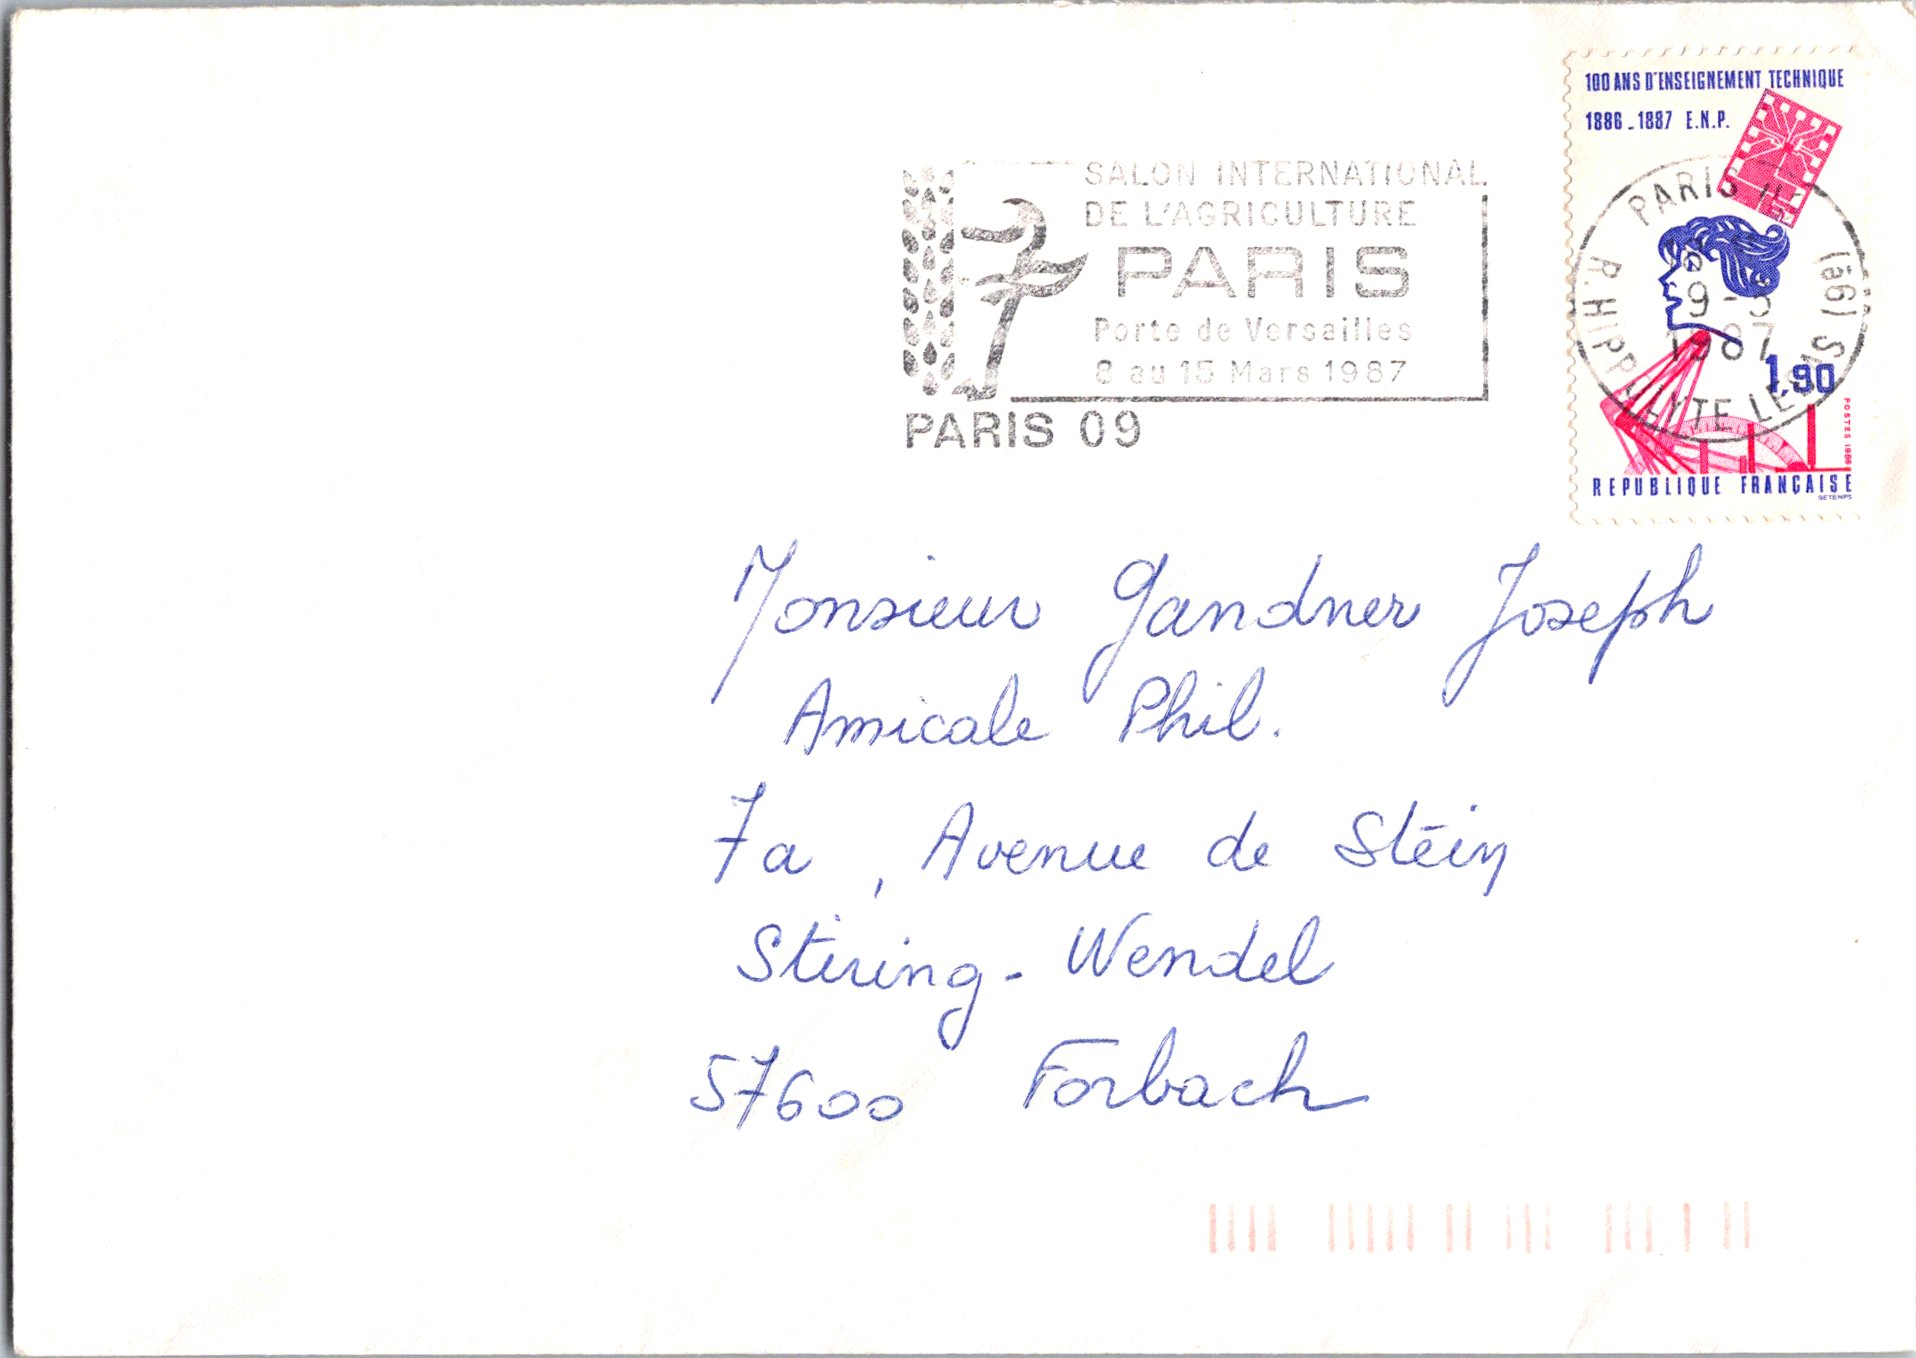 100 ANS D'ENSEIGNEMENT TECHNIQUE
1886-1887 E.N.P.
SALON INTERNATIONAL
DE L'AGRICULTURE
PARIS
Porte de Versailles
8 au 15 Mars 1987
PARIS 09
PARIS
R. HIPPOLYTE LEBAS (9e)
9-3
1987
1,90
POSTES 1986
REPUBLIQUE FRANÇAISE
Monsieur Gandner Joseph
Amicale Phil.
7a, Avenue de Stéin
Stiring-Wendel
57600 Forbach